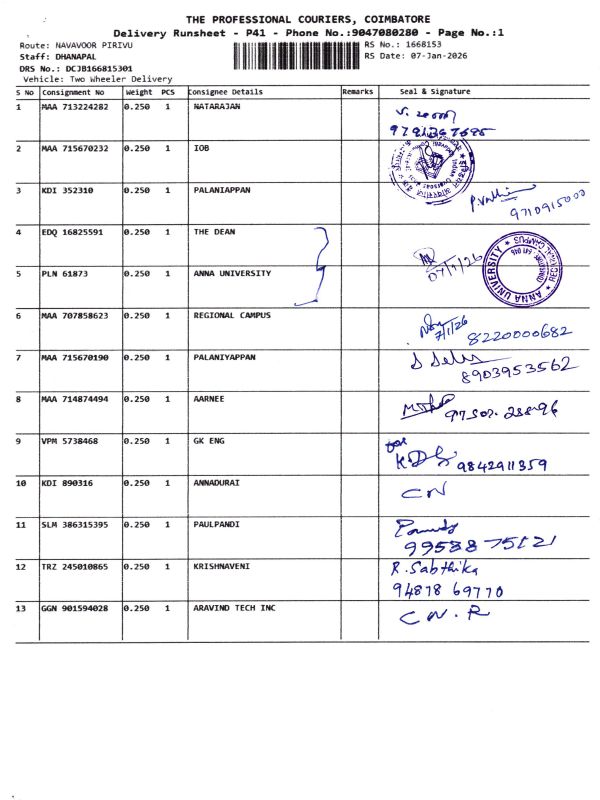 THE PROFESSIONAL COURIERS, COIMBATORE
Delivery Runsheet - P41 - Phone No.:9047080280 - Page No.:1
Route: NAVAVOOR PIRIVU RS No.: 1668153
Staff: DHANAPAL RS Date: 07-Jan-2026
DRS No.: DCJB166815301
Vehicle: Two Wheeler Delivery
S No Consignment No Weight PCS Consignee Details Remarks Seal & Signature
1 MAA 713224282 0.250 1 NATARAJAN
2 MAA 715670232 0.250 1 IOB
3 KDI 352310 0.250 1 PALANIAPPAN
9710915000
4 EDQ 16825591 0.250 1 THE DEAN
07/1/26
ANNA UNIVERSITY
REGIONAL CAMPUS
5 PLN 61873 0.250 1 ANNA UNIVERSITY
6 MAA 707858623 0.250 1 REGIONAL CAMPUS
7/1/26 8220000682
7 MAA 715670190 0.250 1 PALANIYAPPAN
8903953562
8 MAA 714874494 0.250 1 AARNEE
9 VPM 5738468 0.250 1 GK ENG
for
9842911359
10 KDI 890316 0.250 1 ANNADURAI CN
11 SLM 386315395 0.250 1 PAULPANDI
99588 75121
12 TRZ 245010865 0.250 1 KRISHNAVENI R. Sabthika
94878 69770
13 GGN 901594028 0.250 1 ARAVIND TECH INC CN.R